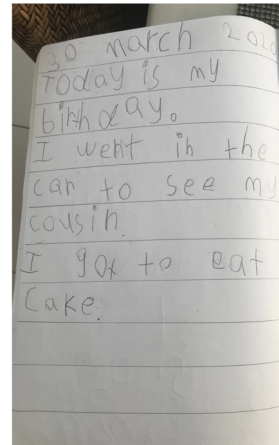 30 march 2020
Today is my
birthday.
I went in the
car to see my
cousin.
I got to eat
Cake.